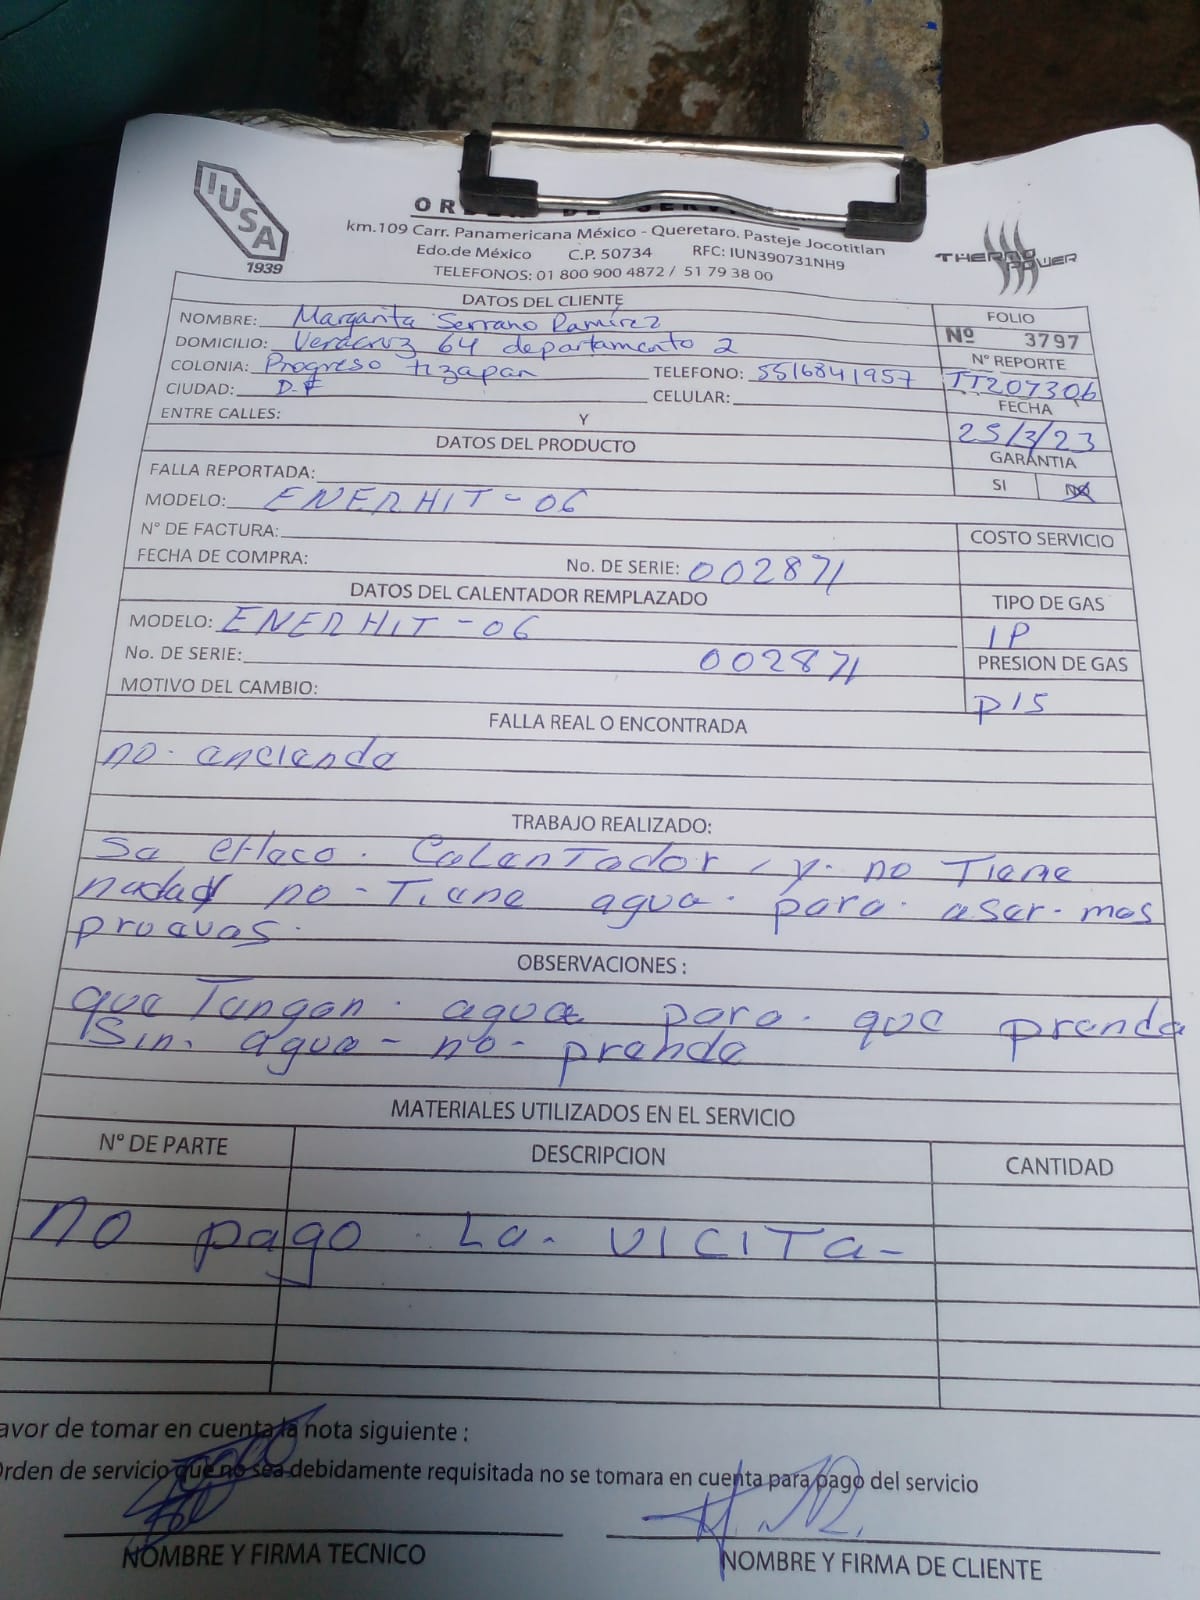 IUSA
1939
ORDEN DE SERVI
km.109 Carr. Panamericana México - Queretaro. Pasteje Jocotitlan
Edo.de México C.P. 50734 RFC: IUN390731NH9
TELEFONOS: 01 800 900 4872 / 51 79 38 00
THERMO POWER
DATOS DEL CLIENTE
NOMBRE: Margarita Serrano Ramírez
DOMICILIO: Veracruz 64 departamento 2
COLONIA: Progreso tizapan TELEFONO: 5516841957
CIUDAD: D.F CELULAR:
ENTRE CALLES: Y
FOLIO
Nº 3797
N° REPORTE
TT207306
FECHA
25/3/23
GARANTIA
SI NO
DATOS DEL PRODUCTO
FALLA REPORTADA:
MODELO: ENERHIT-06
N° DE FACTURA:
FECHA DE COMPRA: No. DE SERIE: 002871
COSTO SERVICIO
DATOS DEL CALENTADOR REMPLAZADO
MODELO: ENERHIT-06
No. DE SERIE: 002871
MOTIVO DEL CAMBIO:
TIPO DE GAS
LP
PRESION DE GAS
P15
FALLA REAL O ENCONTRADA
no. anciende
TRABAJO REALIZADO:
Sa cHaco. CalenTador, y. no Tiene
nada y no-Tiene agua. para. aser. mas
pruavas.
OBSERVACIONES :
que Tangan. agua para. que prenda
Sin. agua - no - prende
MATERIALES UTILIZADOS EN EL SERVICIO
N° DE PARTE DESCRIPCION CANTIDAD
no pago. La. VICITa-
avor de tomar en cuenta la nota siguiente :
Orden de servicio que no sea debidamente requisitada no se tomara en cuenta para pago del servicio
NOMBRE Y FIRMA TECNICO NOMBRE Y FIRMA DE CLIENTE